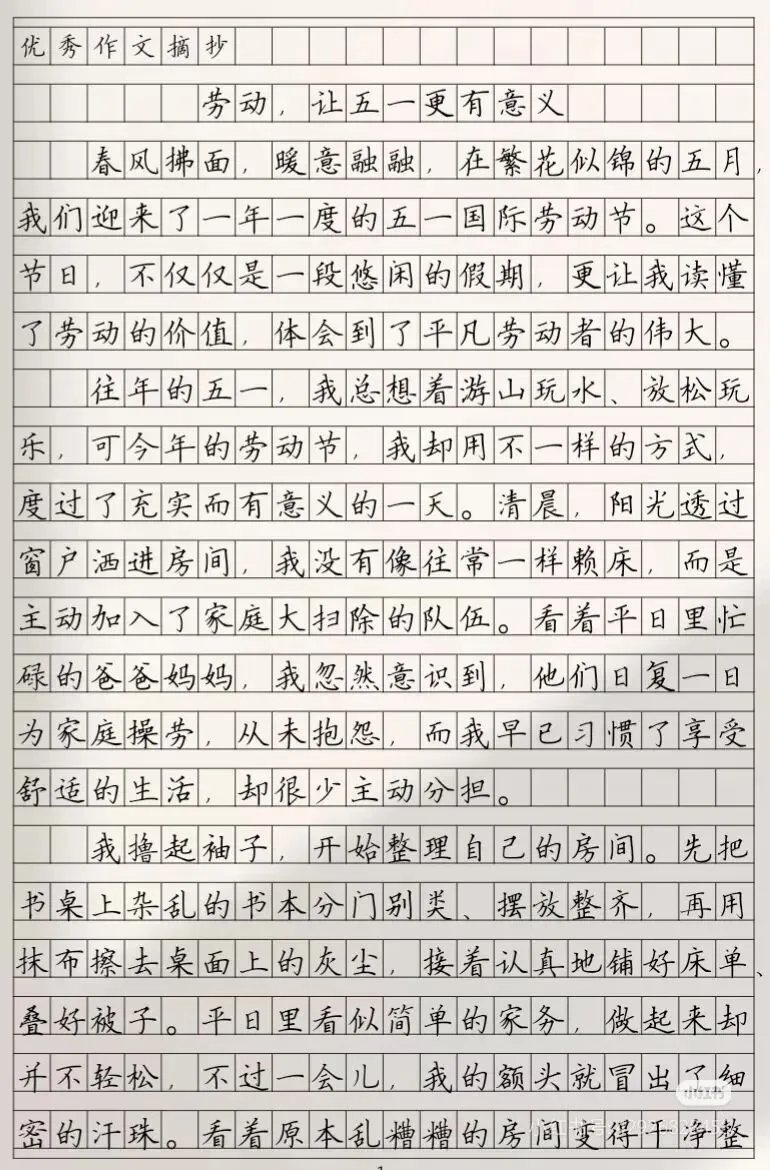 优秀作文摘抄
劳动，让五一更有意义
春风拂面，暖意融融，在繁花似锦的五月，
我们迎来了一年一度的五一国际劳动节。这个
节日，不仅仅是一段悠闲的假期，更让我读懂
了劳动的价值，体会到了平凡劳动者的伟大。
往年的五一，我总想着游山玩水、放松玩
乐，可今年的劳动节，我却用不一样的方式，
度过了充实而有意义的一天。清晨，阳光透过
窗户洒进房间，我没有像往常一样赖床，而是
主动加入了家庭大扫除的队伍。看着平日里忙
碌的爸爸妈妈，我忽然意识到，他们日复一日
为家庭操劳，从未抱怨，而我早已习惯了享受
舒适的生活，却很少主动分担。
我撸起袖子，开始整理自己的房间。先把
书桌上杂乱的书本分门别类、摆放整齐，再用
抹布擦去桌面上的灰尘，接着认真地铺好床单、
叠好被子。平日里看似简单的家务，做起来却
并不轻松，不过一会儿，我的额头就冒出了细
密的汗珠。看着原本乱糟糟的房间变得干净整
小红书
小红书号
1